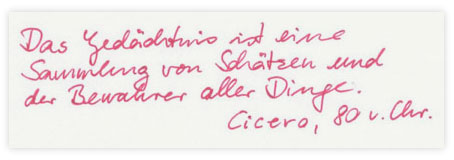 Das Gedächtnis ist eine
Sammlung von Schätzen und
der Bewahrer aller Dinge.
Cicero, 80 v. Chr.